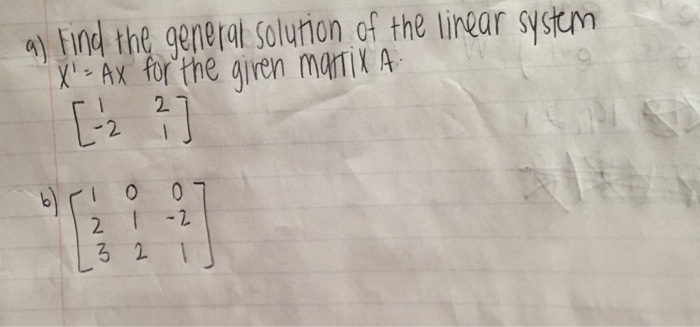 a) Find the general solution of the linear system
X' = AX for the given matrix A.
[ 1 2
-2 1 ]
b) [ 1 0 0
2 1 -2
3 2 1 ]